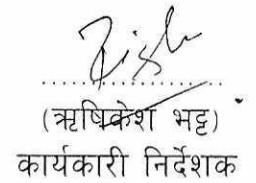 (ऋषिकेश भट्ट)
कार्यकारी निर्देशक